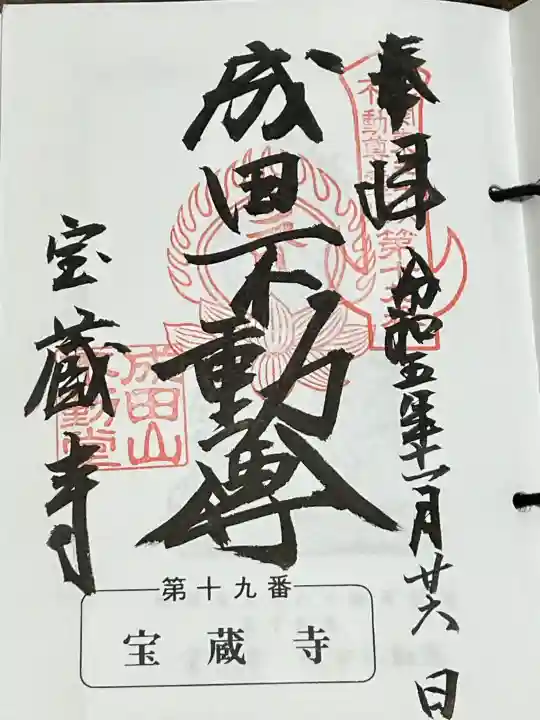 奉拝
令和五年十一月廿六日
成田不動尊
宝蔵寺
成田山
不動堂
第十九番
宝蔵寺